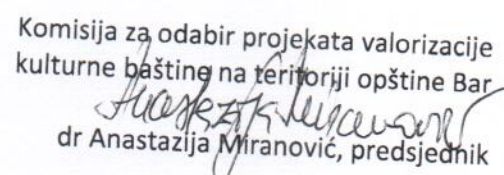 Komisija za odabir projekata valorizacije
kulturne baštine na teritoriji opštine Bar
Anastazija Miranović
dr Anastazija Miranović, predsjednik